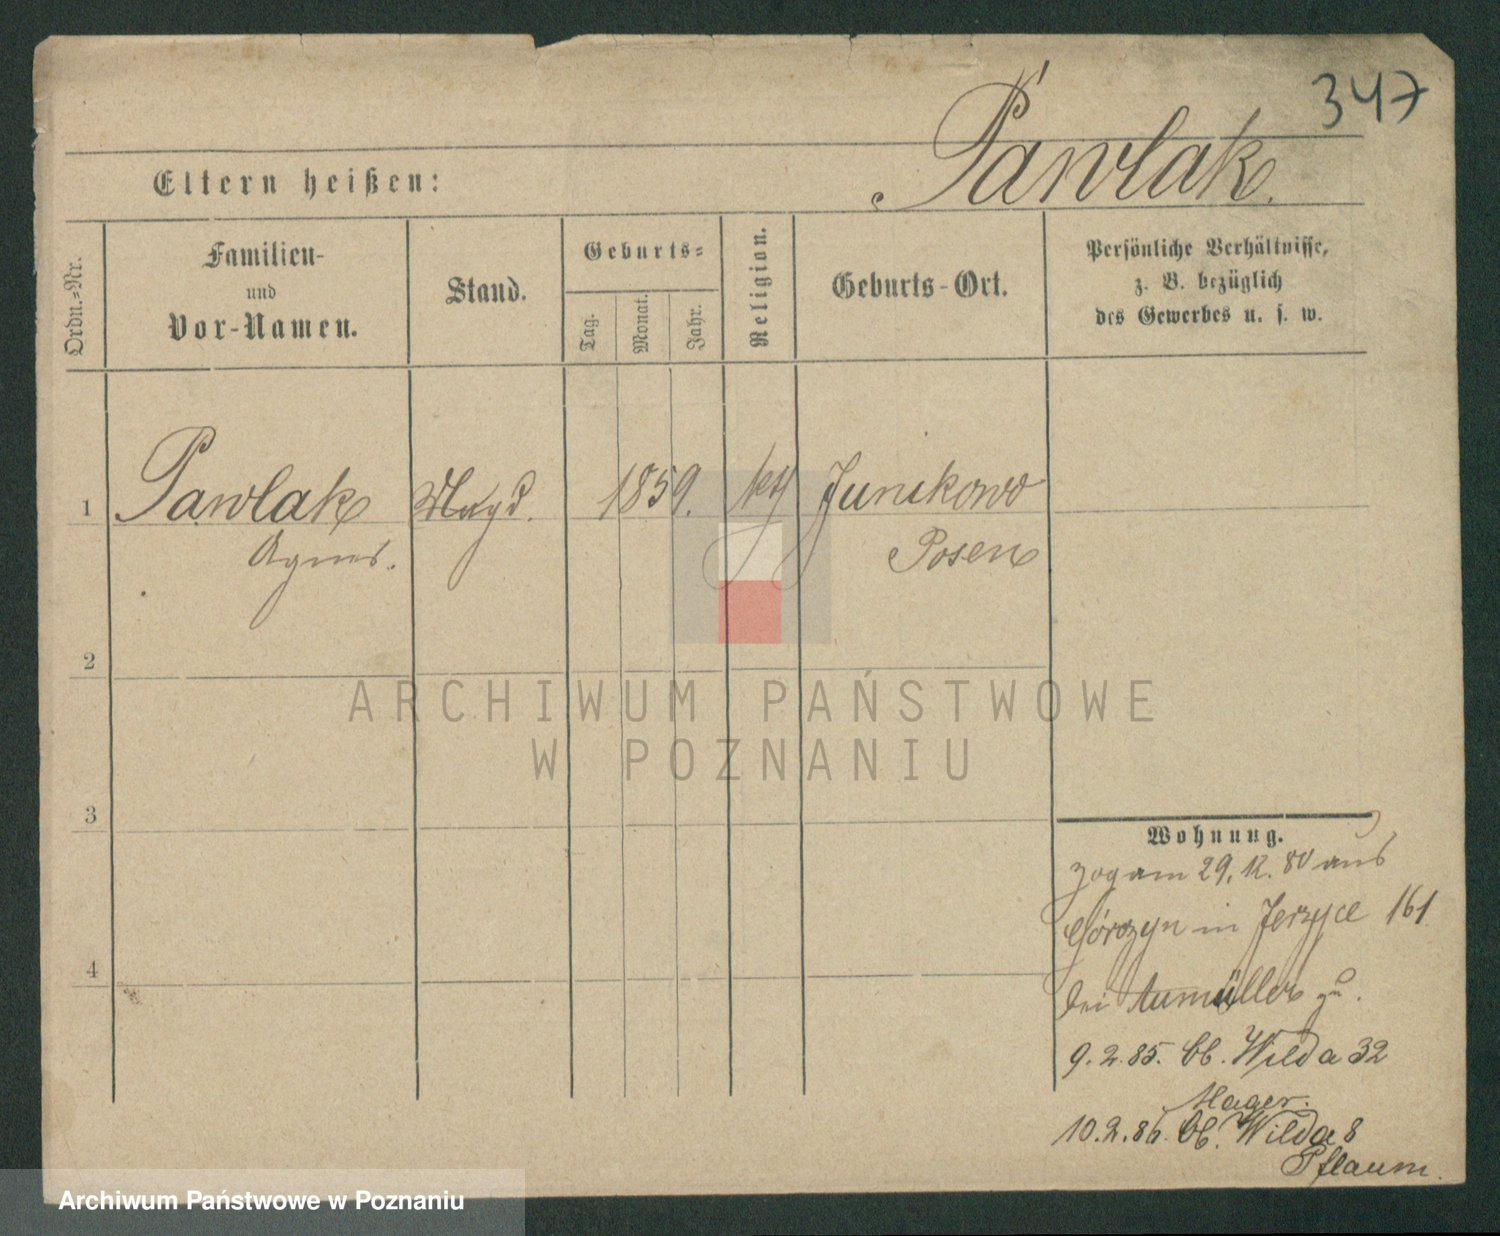 347
Pawlak.
Eltern heißen:
Ordn.-Nr.
Familien-
und
Vor-Namen.
Stand.
Geburts-
Tag.
Monat.
Jahr.
Religion.
Geburts-Ort.
Persönliche Verhältnisse,
z. B. bezüglich
des Gewerbes u. s. w.
1 Pawlak Magd. 1859. kth Junikowo
Agnes. Posen
2
3
4
ARCHIWUM PAŃSTWOWE
W POZNANIU
Wohnung.
zog am 29. 12. 80 aus
Górczyn in Jerzyce 161
bei Aumüller zu.
9. 2. 85. Wilda 32
Hager.
10. 2. 86. Wilda 8
Pflaum.
Archiwum Państwowe w Poznaniu